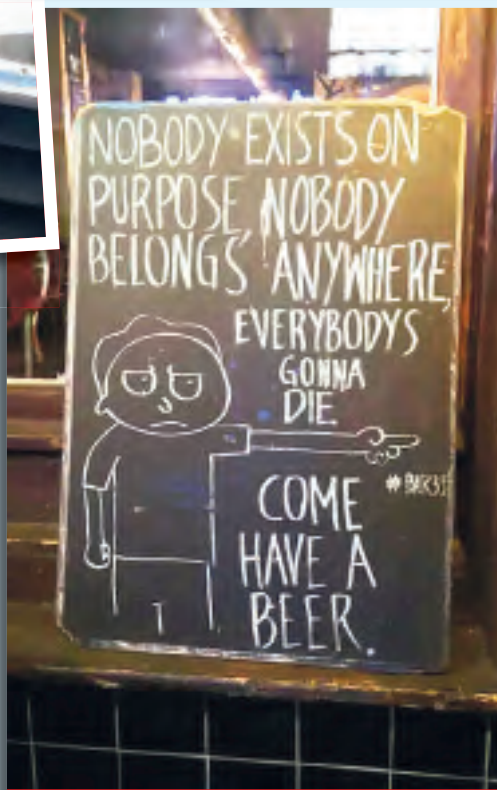 NOBODY EXISTS ON
PURPOSE, NOBODY
BELONGS ANYWHERE,
EVERYBODYS
GONNA
DIE
COME
HAVE A
BEER.